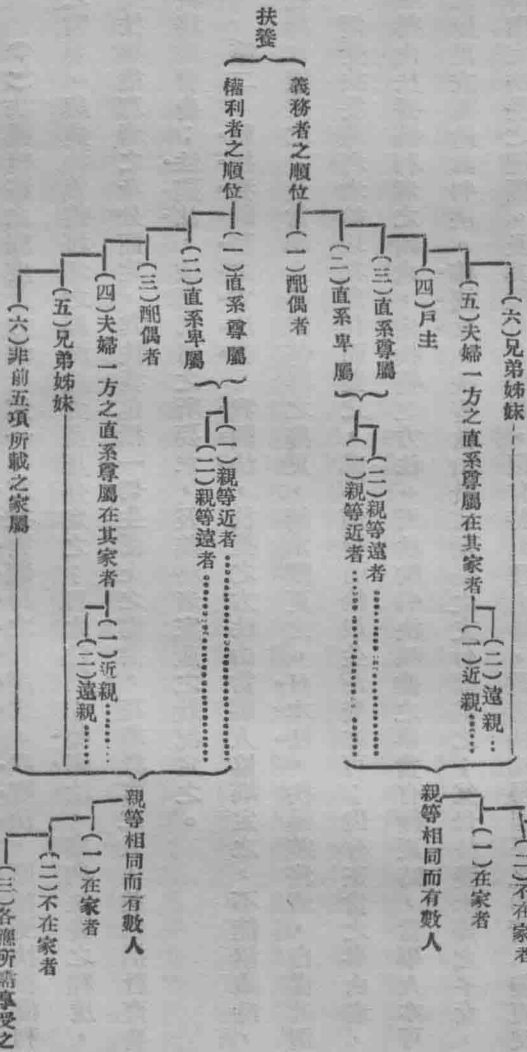 扶養
義務者之順位
(一)配偶者
(二)直系卑屬
(三)直系尊屬
(一)親等近者
(二)親等遠者
(四)戶主
(五)夫婦一方之直系尊屬在其家者
(一)近親
(二)遠親
(六)兄弟姊妹
親等相同而有數人
(一)在家者
(二)不在家者
權利者之順位
(一)直系尊屬
(二)直系卑屬
(一)親等近者
(二)親等遠者
(三)配偶者
(四)夫婦一方之直系尊屬在其家者
(一)近親
(二)遠親
(五)兄弟姊妹
(六)非前五項所載之家屬
親等相同而有數人
(一)在家者
(二)不在家者
(三)各應所需享受之